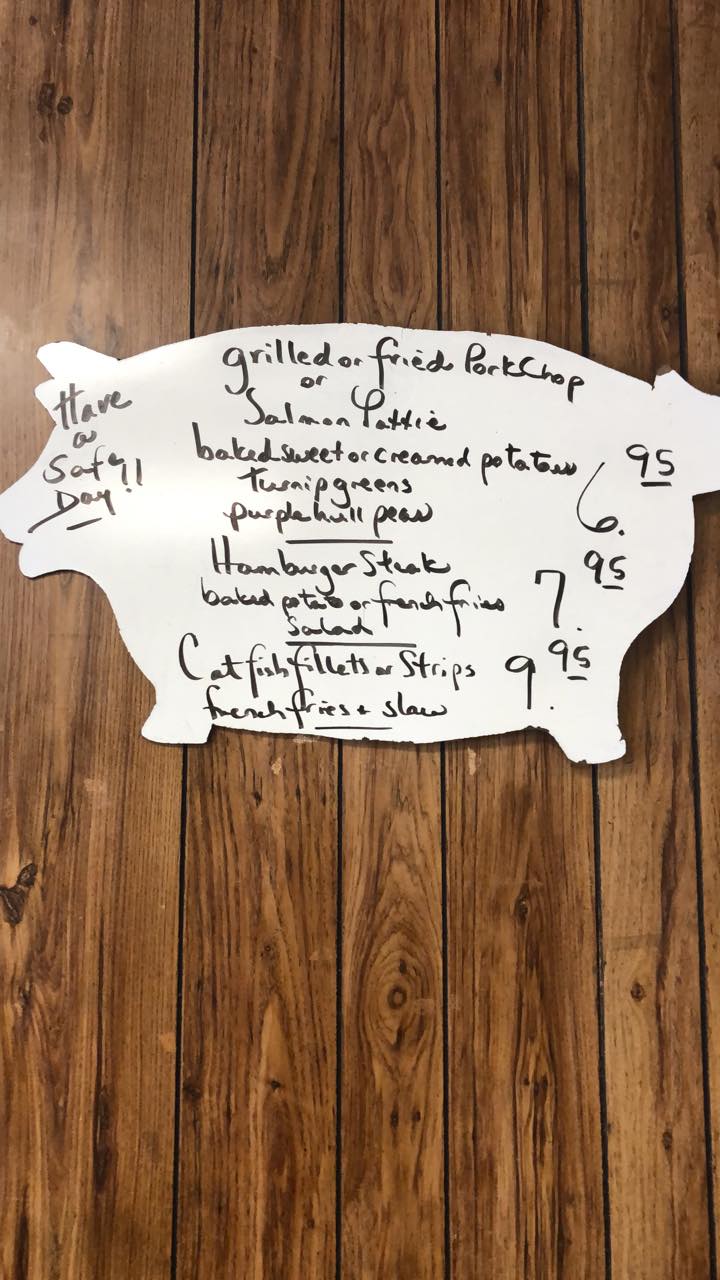 Have
a
Safe
Day!!
grilled or fried Pork Chop
or
Salmon Pattie
baked sweet or creamed potatoes
turnip greens
purple hull peas
6.95
Hamburger Steak
baked potato or french fries
Salad
7.95
Catfish fillets or Strips
french fries & slaw
9.95